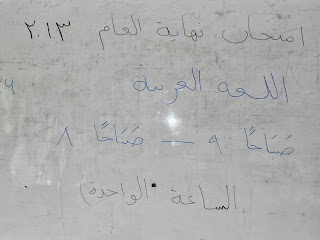 امتحان نهاية العام ٢٠١٣
اللغة العربية
صَبَاحًا ٩ — صَبَاحًا ٨
(الساعة الواحدة)